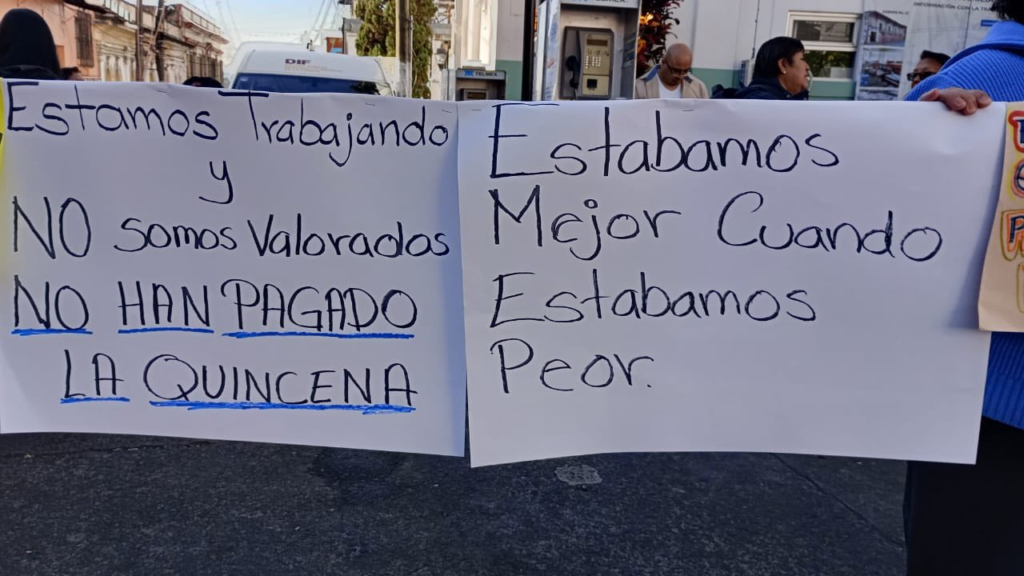 Estamos Trabajando
y
NO somos Valoradas
NO HAN PAGADO
LA QUINCENA
Estabamos
Mejor Cuando
Estabamos
Peor.
DIF
TELMEX